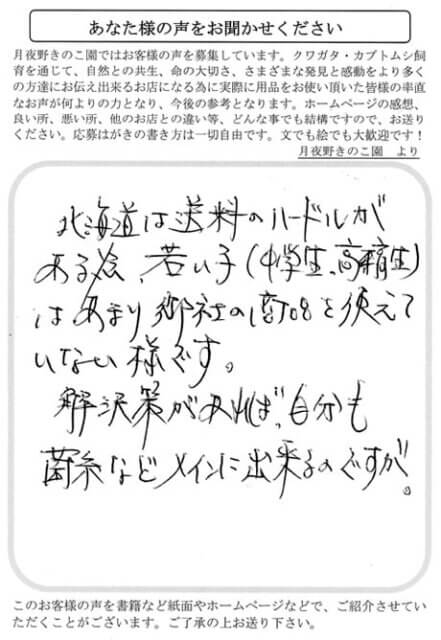 あなた様の声をお聞かせください
月夜野きのこ園ではお客様の声を募集しています。クワガタ・カブトムシ飼
育を通じて、自然との共生、命の大切さ、さまざまな発見と感動をより多く
の方達にお伝え出来るお店になる為に実際に用品をお使い頂いた皆様の率直
なお声が何よりの力となり、今後の参考となります。ホームページの感想、
良い所、悪い所、他のお店との違い等、どんな事でも結構ですので、お送り
ください。応募はがきの書き方は一切自由です。文でも絵でも大歓迎です！
月夜野きのこ園 より
北海道は送料のハードルが
ある為、若い子（中学生、高校生）
はあまり御社の商品を使えて
いない様です。
解決策があれば、自分も
菌糸などメインに出来るのですが。
このお客様の声を書籍など紙面やホームページなどで、ご紹介させてい
ただくことがございます。ご了承の上お送り下さい。